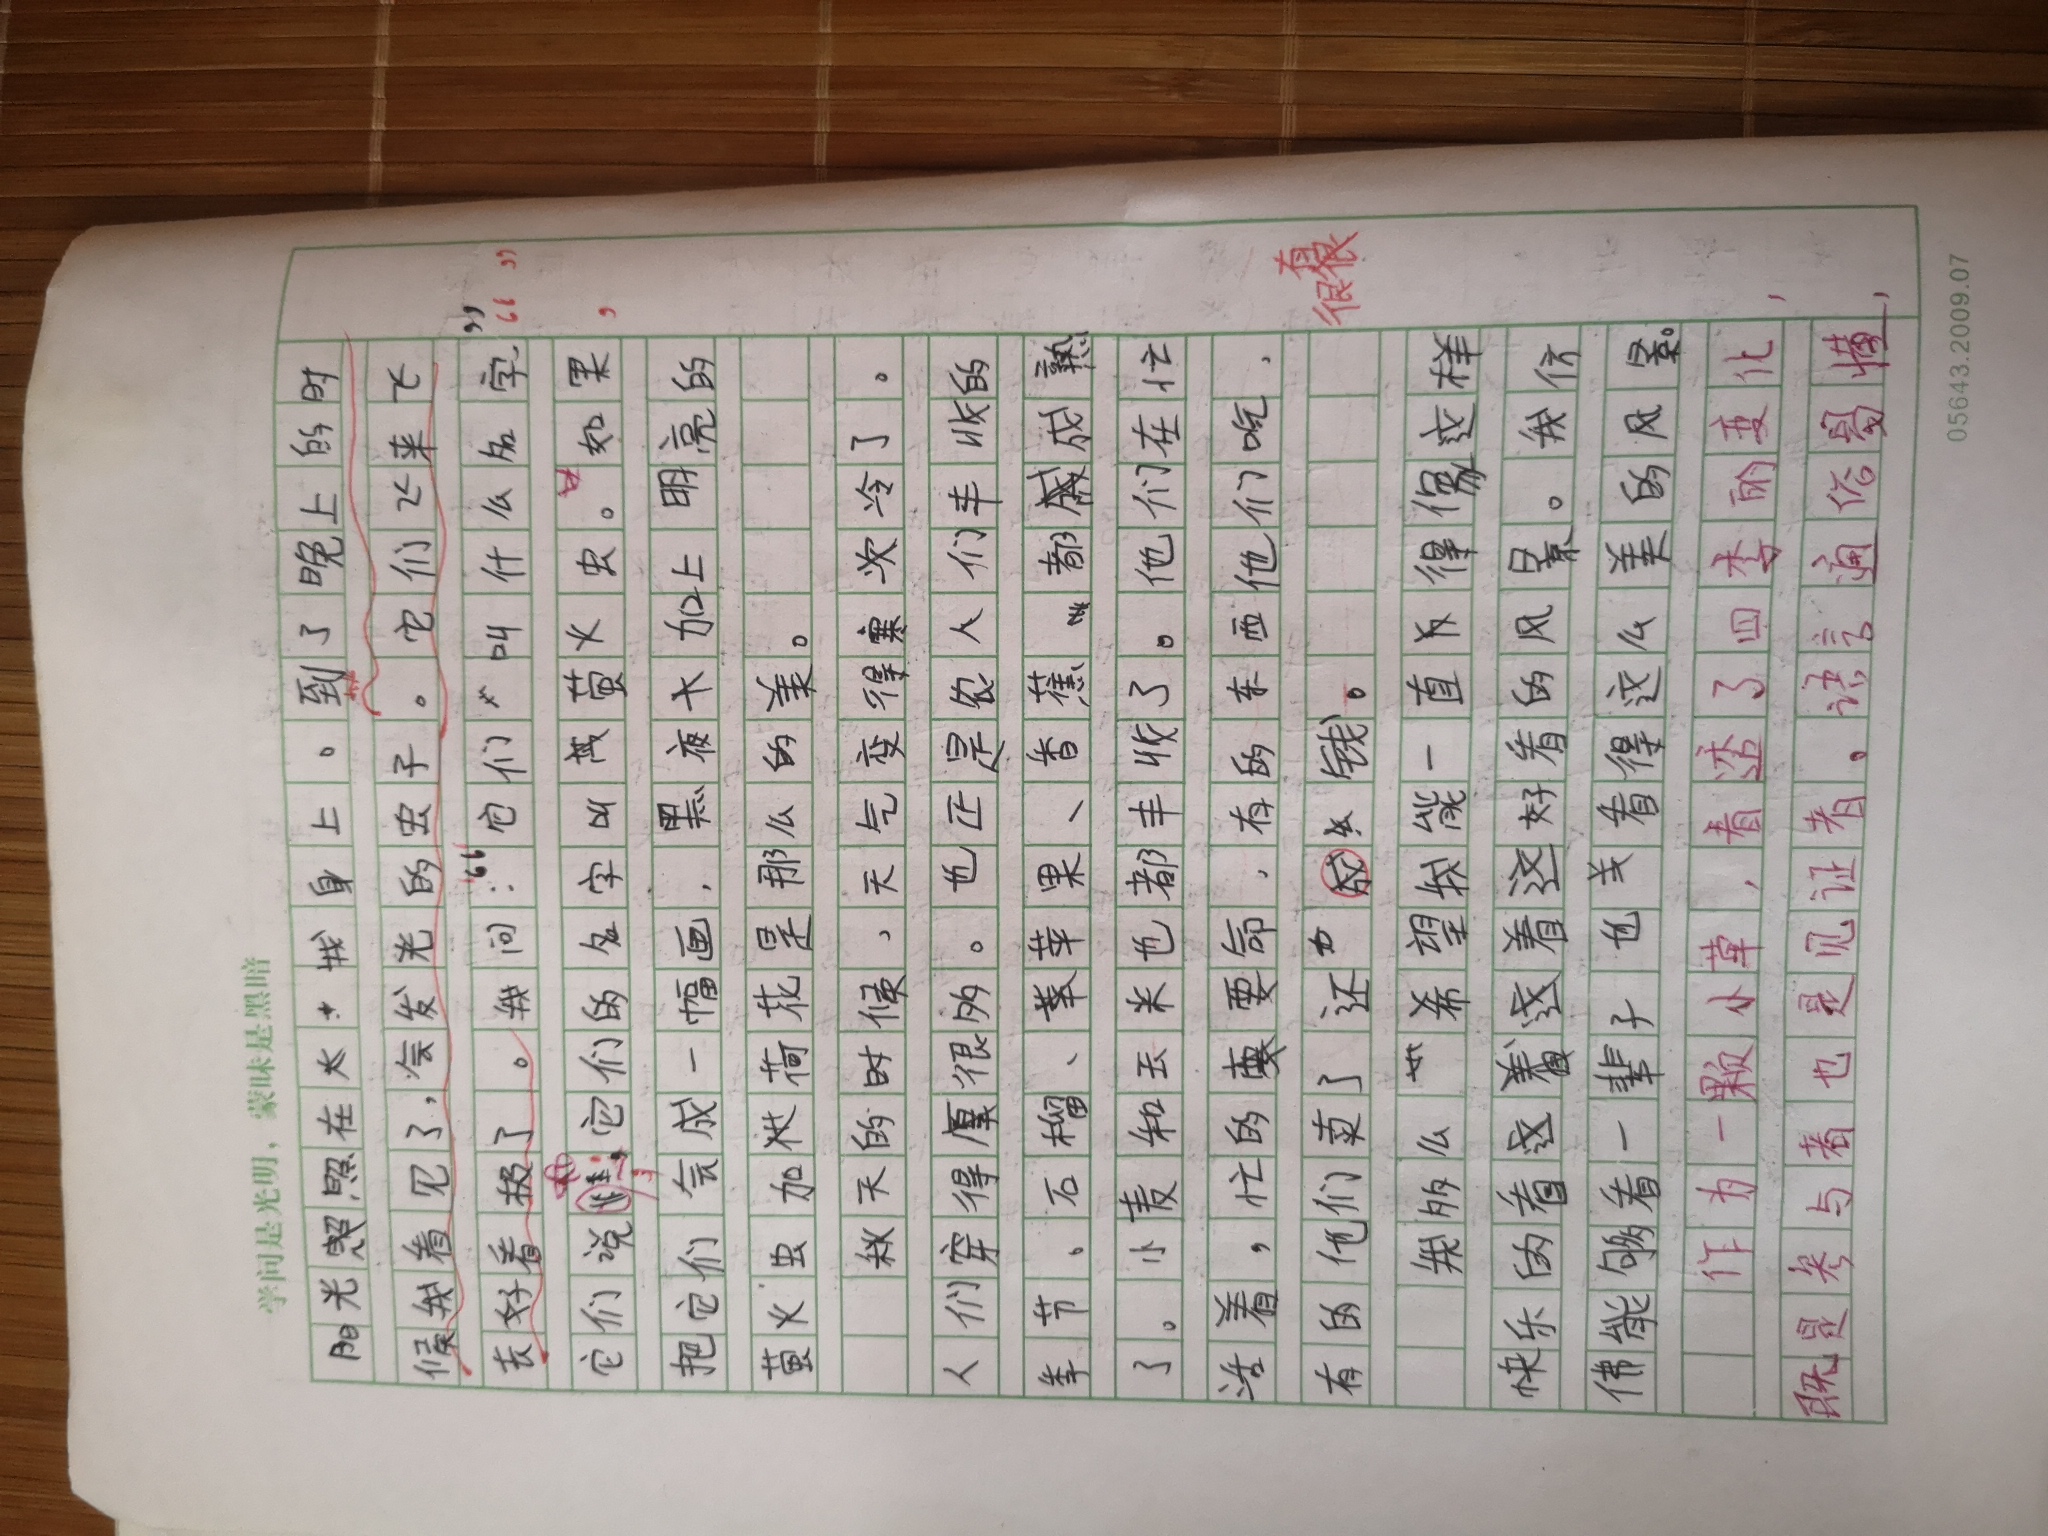 学问是光明，蒙昧是黑暗
阳光照在太我身上。到了晚上的时
候我看见了，会发光的虫子。它们飞来飞
去好看极了。我问：“它们叫什么名字”
它们说：它们的名字叫萤火虫。如果
把它们会成一幅画，黑夜大加上明亮的
萤火虫加杖荷花是那么的美。
秋天的时候，天气变得寒次冷了。
人们穿得厚很多。也正是农人们丰收的
季节、石榴、苹果、香蕉都成熟
了。小麦和玉米也都丰收了。他们在忙
活着，忙的要命，有的东西他们吃，
有的他们卖了还钱。
我多么希望我能一直这样
快乐的看着这好看的风景。我仿
佛能够看一辈子也看得这么美的风景。
作为一颗小草，看透了四季的变化，
既是参与者也是见证者。语言通俗易懂，
很有很
05643.2009.07